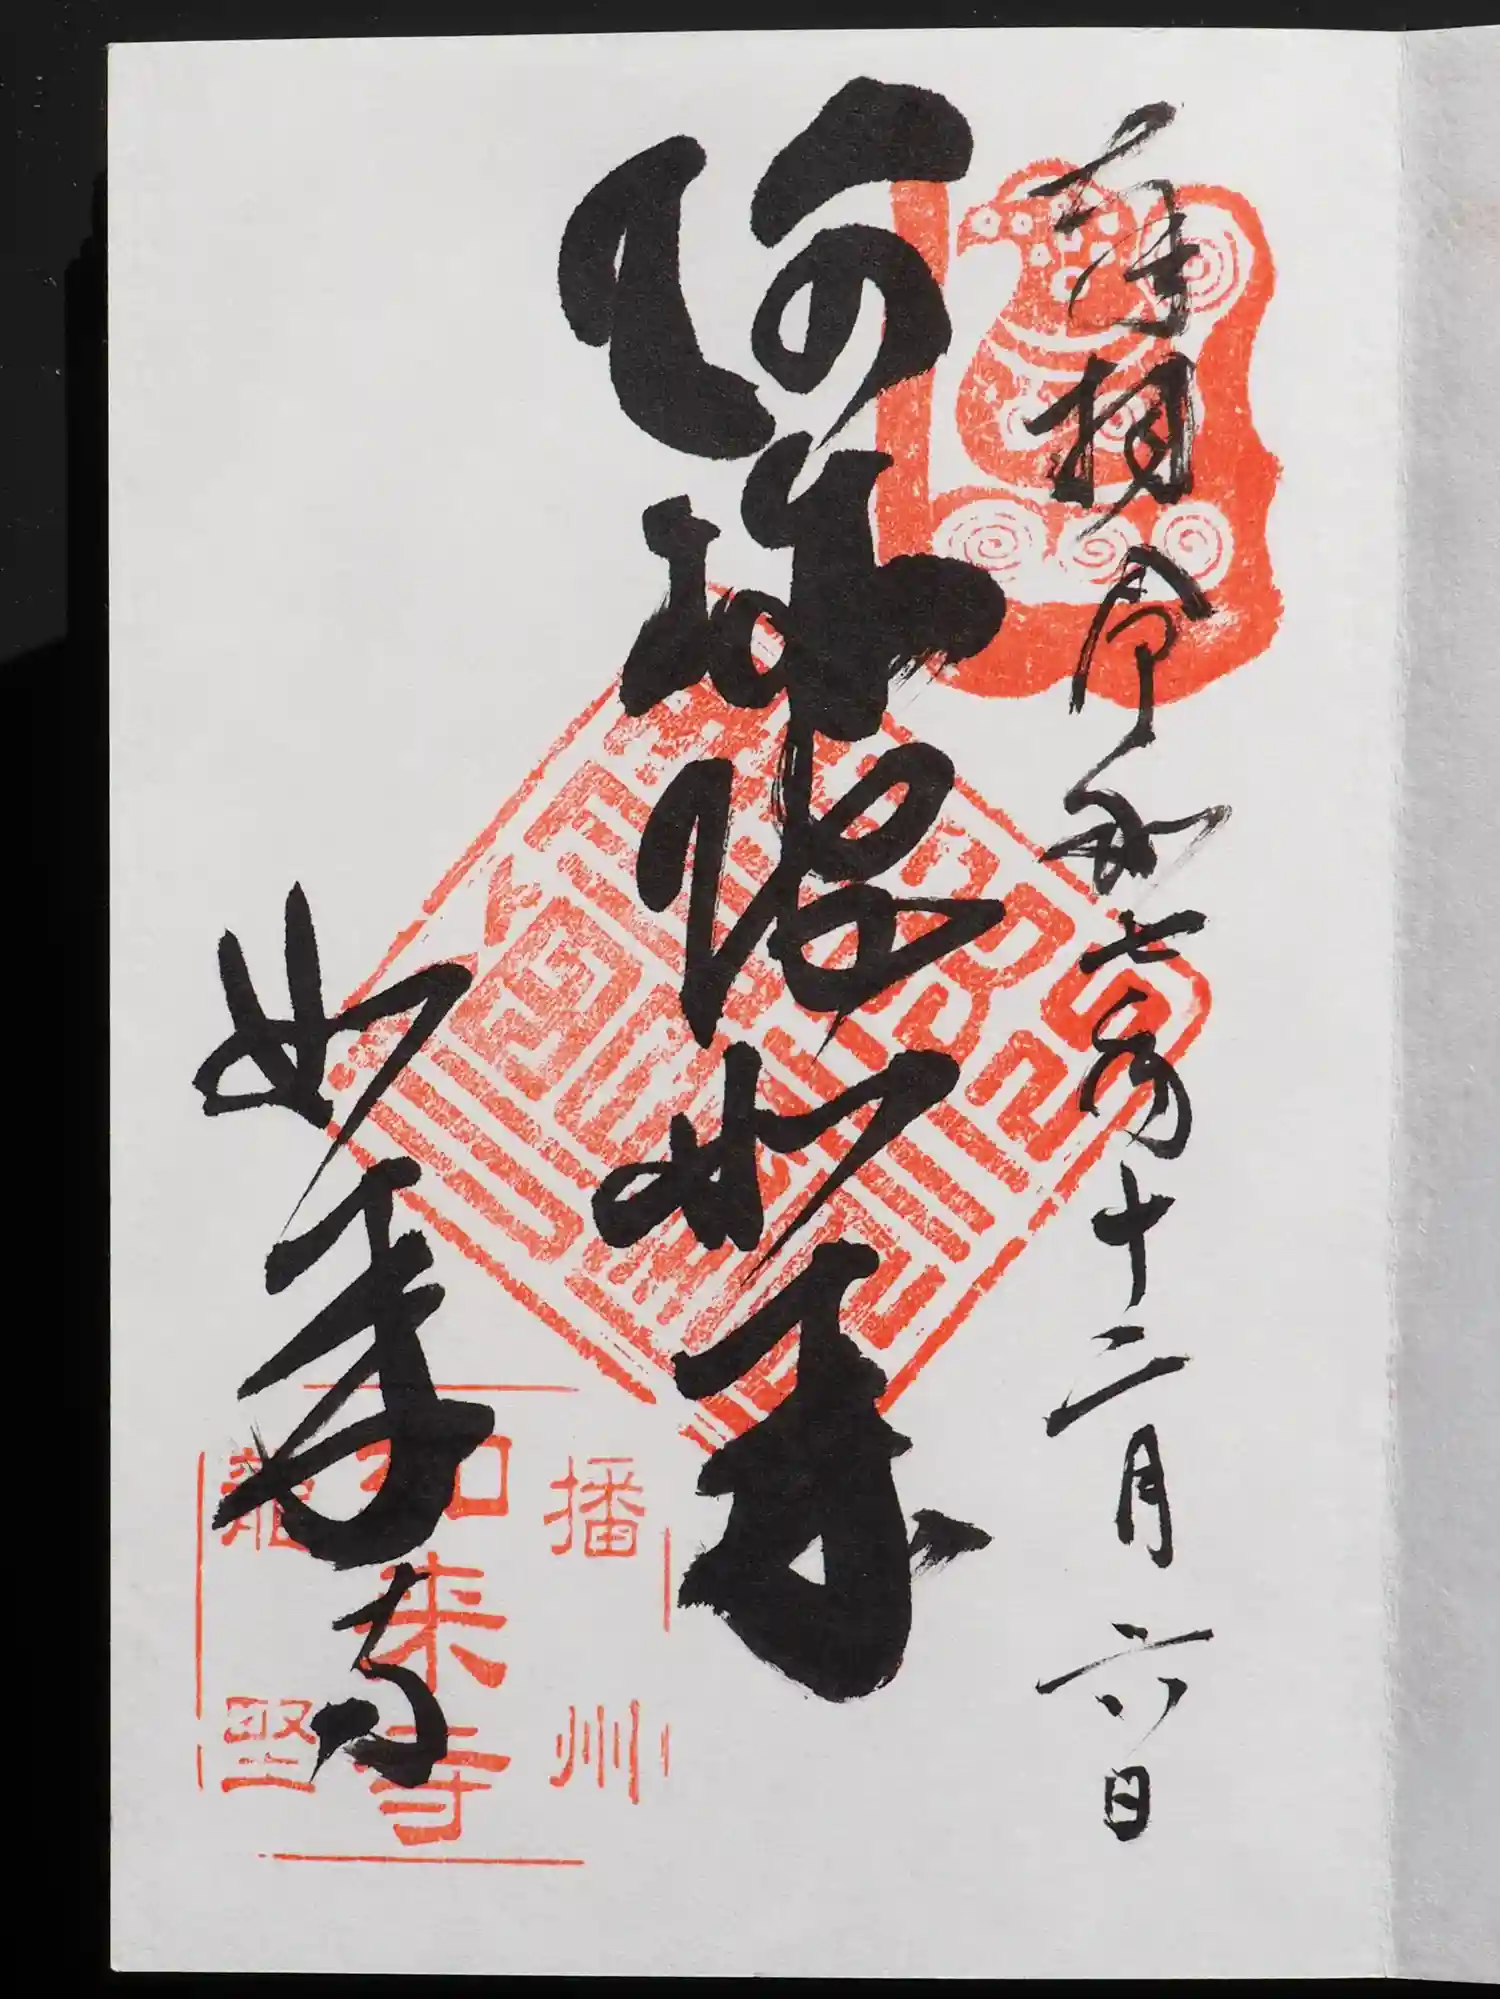 奉拝 令和七年十二月六日
阿弥陀如来
如来寺
播州
如来寺
龍